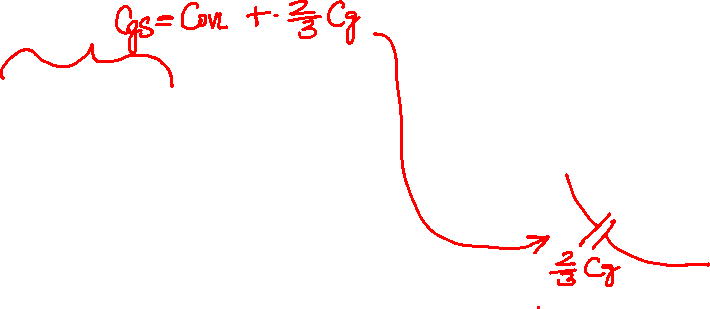 Cgs = Covl + 2/3 Cg
2/3 Cg